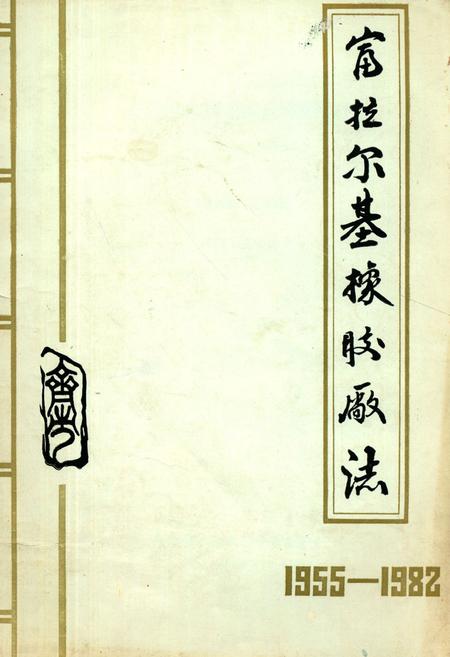 富拉尔基橡胶厰誌
1955—1982